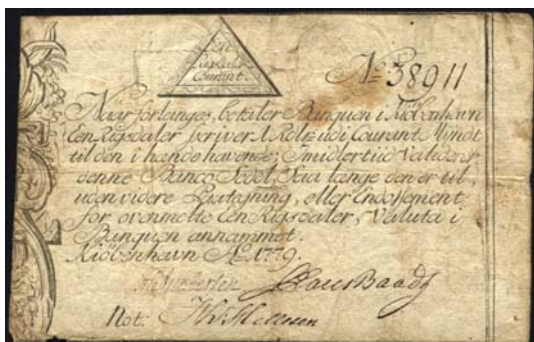 Een
Rigsdaler
Courant.
No 38911
Naar forlanges, betaler Banquen i Kiøbenhavn
Een Rigsdaler skriver 1 Rdlr. udi Courant Myndt
til den i hænde havende; Imidlertiid Valederer
denne Banco-Sedel, saa længe den er til,
uden videre Paategning, eller Endossement
for ovenmelte Een Rigsdaler, Valuta i
Banquen annammet.
Kiøbenhavn Ao. 1779.
Not: